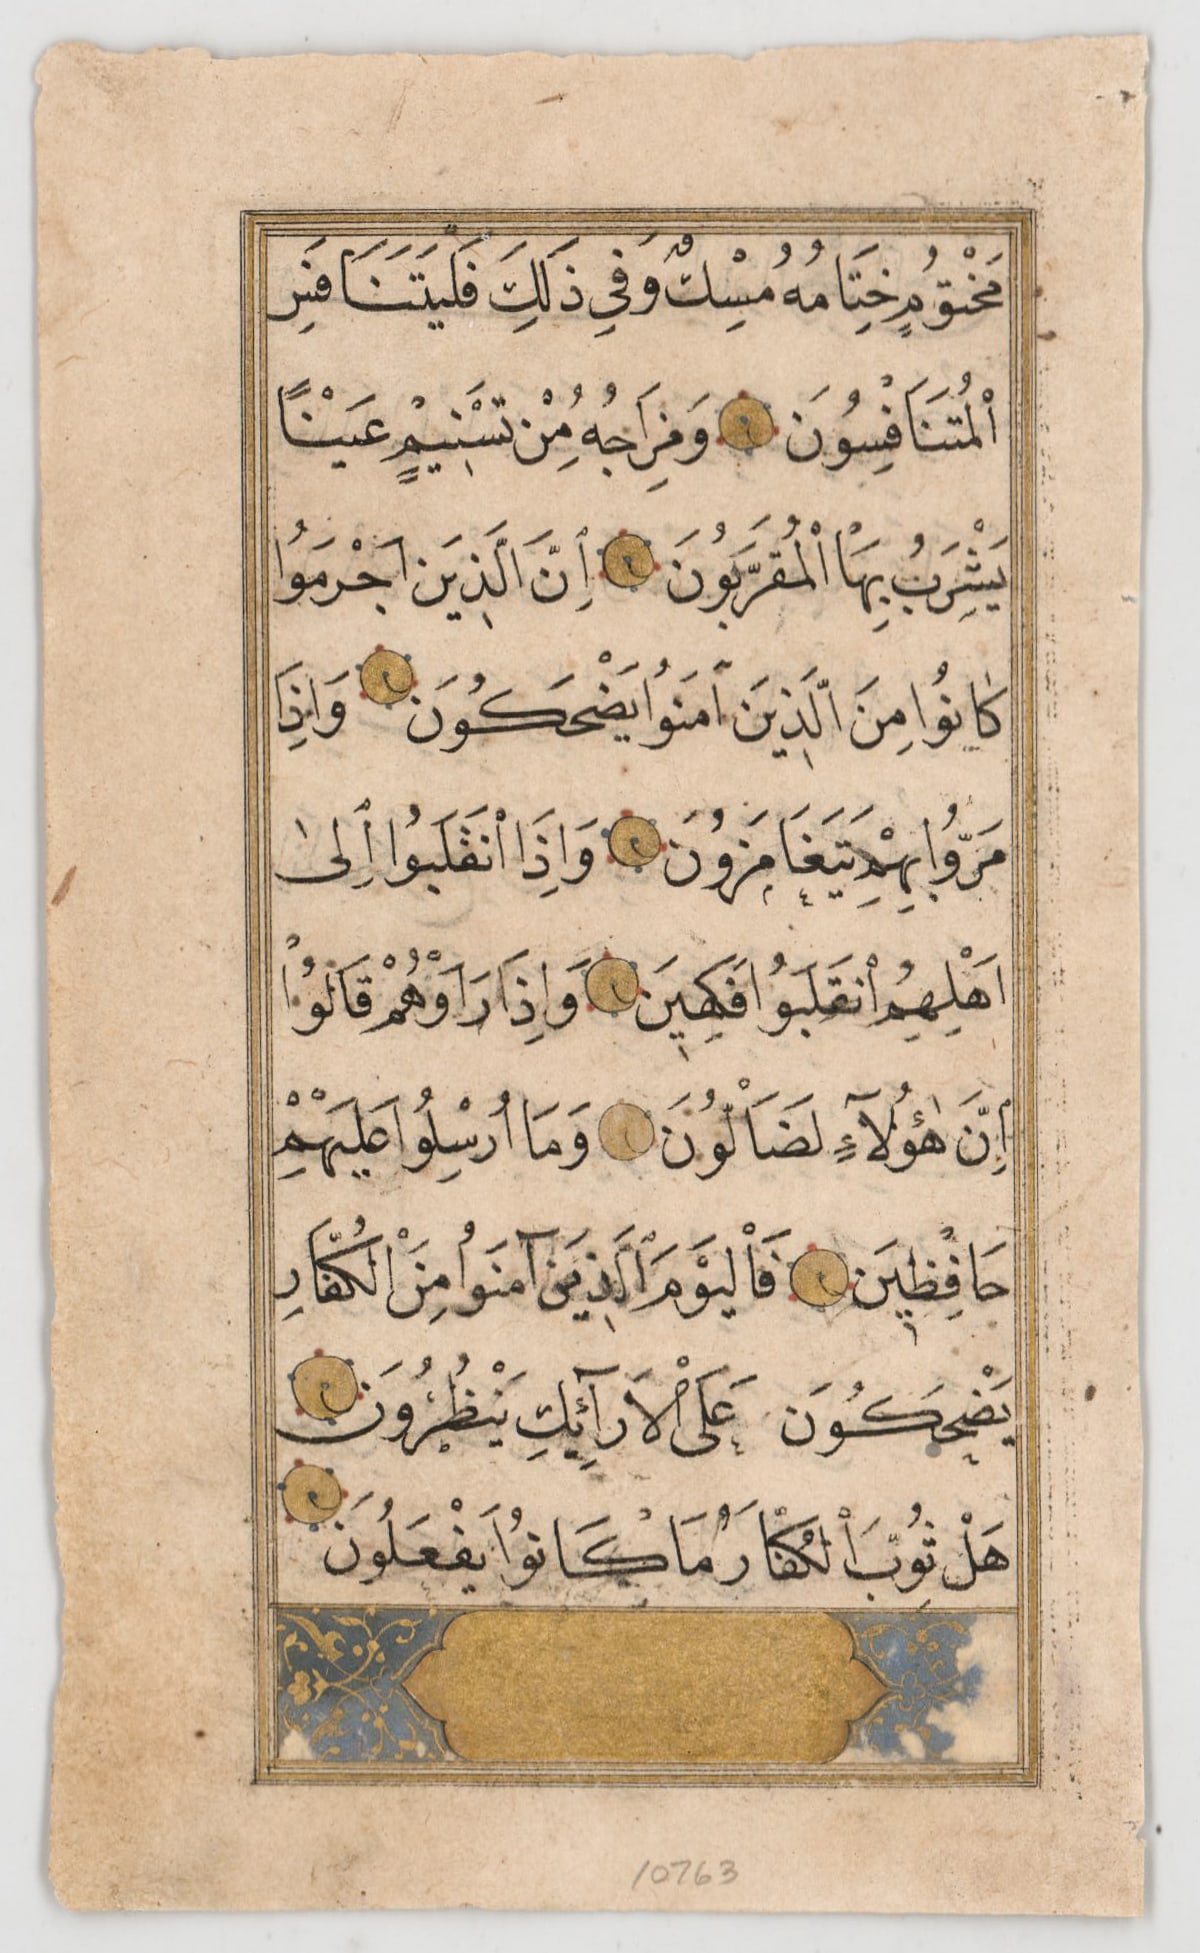 مَخْتُوْمٍ خِتَامُهُ مِسْكٌ وَفِي ذَلِكَ فَلْيَتَنَافَسِ
اْلمُتَنَافِسُونَ وَمِزَاجُهُ مِنْ تَسْنِيْمٍ عَيْنًا
يَشْرَبُ بِهَا اْلمُقَرَّبُونَ اِنَّ الَّذِيَن اَجْرَمُوا
كَانُوا مِنَ الَّذِيَن آمَنُوا يَضْحَكُونَ وَاِذَا
مَرُّوا بِهِمْ يَتَغَامَزُونَ وَاِذَا اْنقَلَبُوا اِلىٰ
اَهْلِهِمُ اْنقَلَبُوا فَكِهِيَن وَاِذَا رَاَوْهُمْ قَالُوا
اِنَّ هٰؤُلَآءِ لَضَآلُّونَ وَمَا اُرْسِلُوا عَلَيْهِمْ
حَافِظِيَن فَاْليَوْمَ الَّذِيَن آمَنُوا مِنَ اْلكُفَّارِ
يَضْحَكُونَ عَلَى اْلاَرَآئِكِ يَنْظُرُونَ
هَلْ ثُوِّبَ اْلكُفَّارُ مَا كَانُوا يَفْعَلُونَ
10763